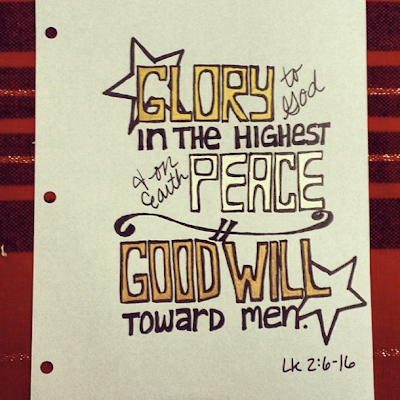 GLORY to God
IN THE HIGHEST
& on Earth PEACE
GOOD WILL
TOWARD MEN.
LK 2:6-16